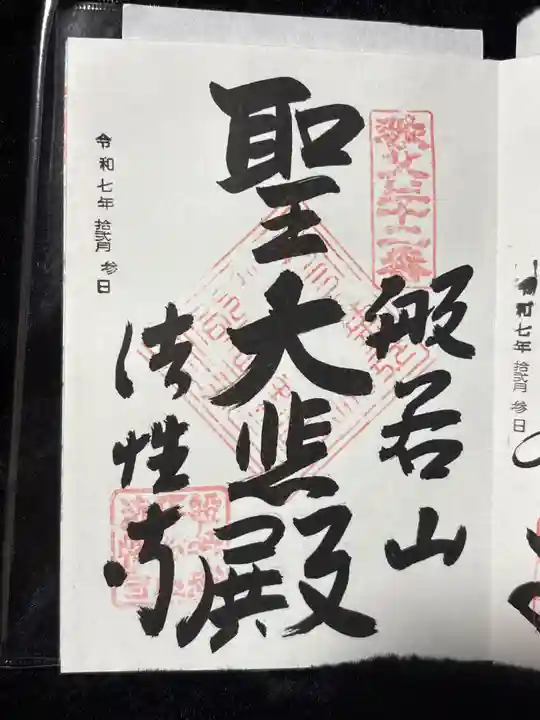 秩父三十二番
般若山
聖大悲殿
法性寺
令和七年 拾弐月 参日
令和七年 拾弐月 参日